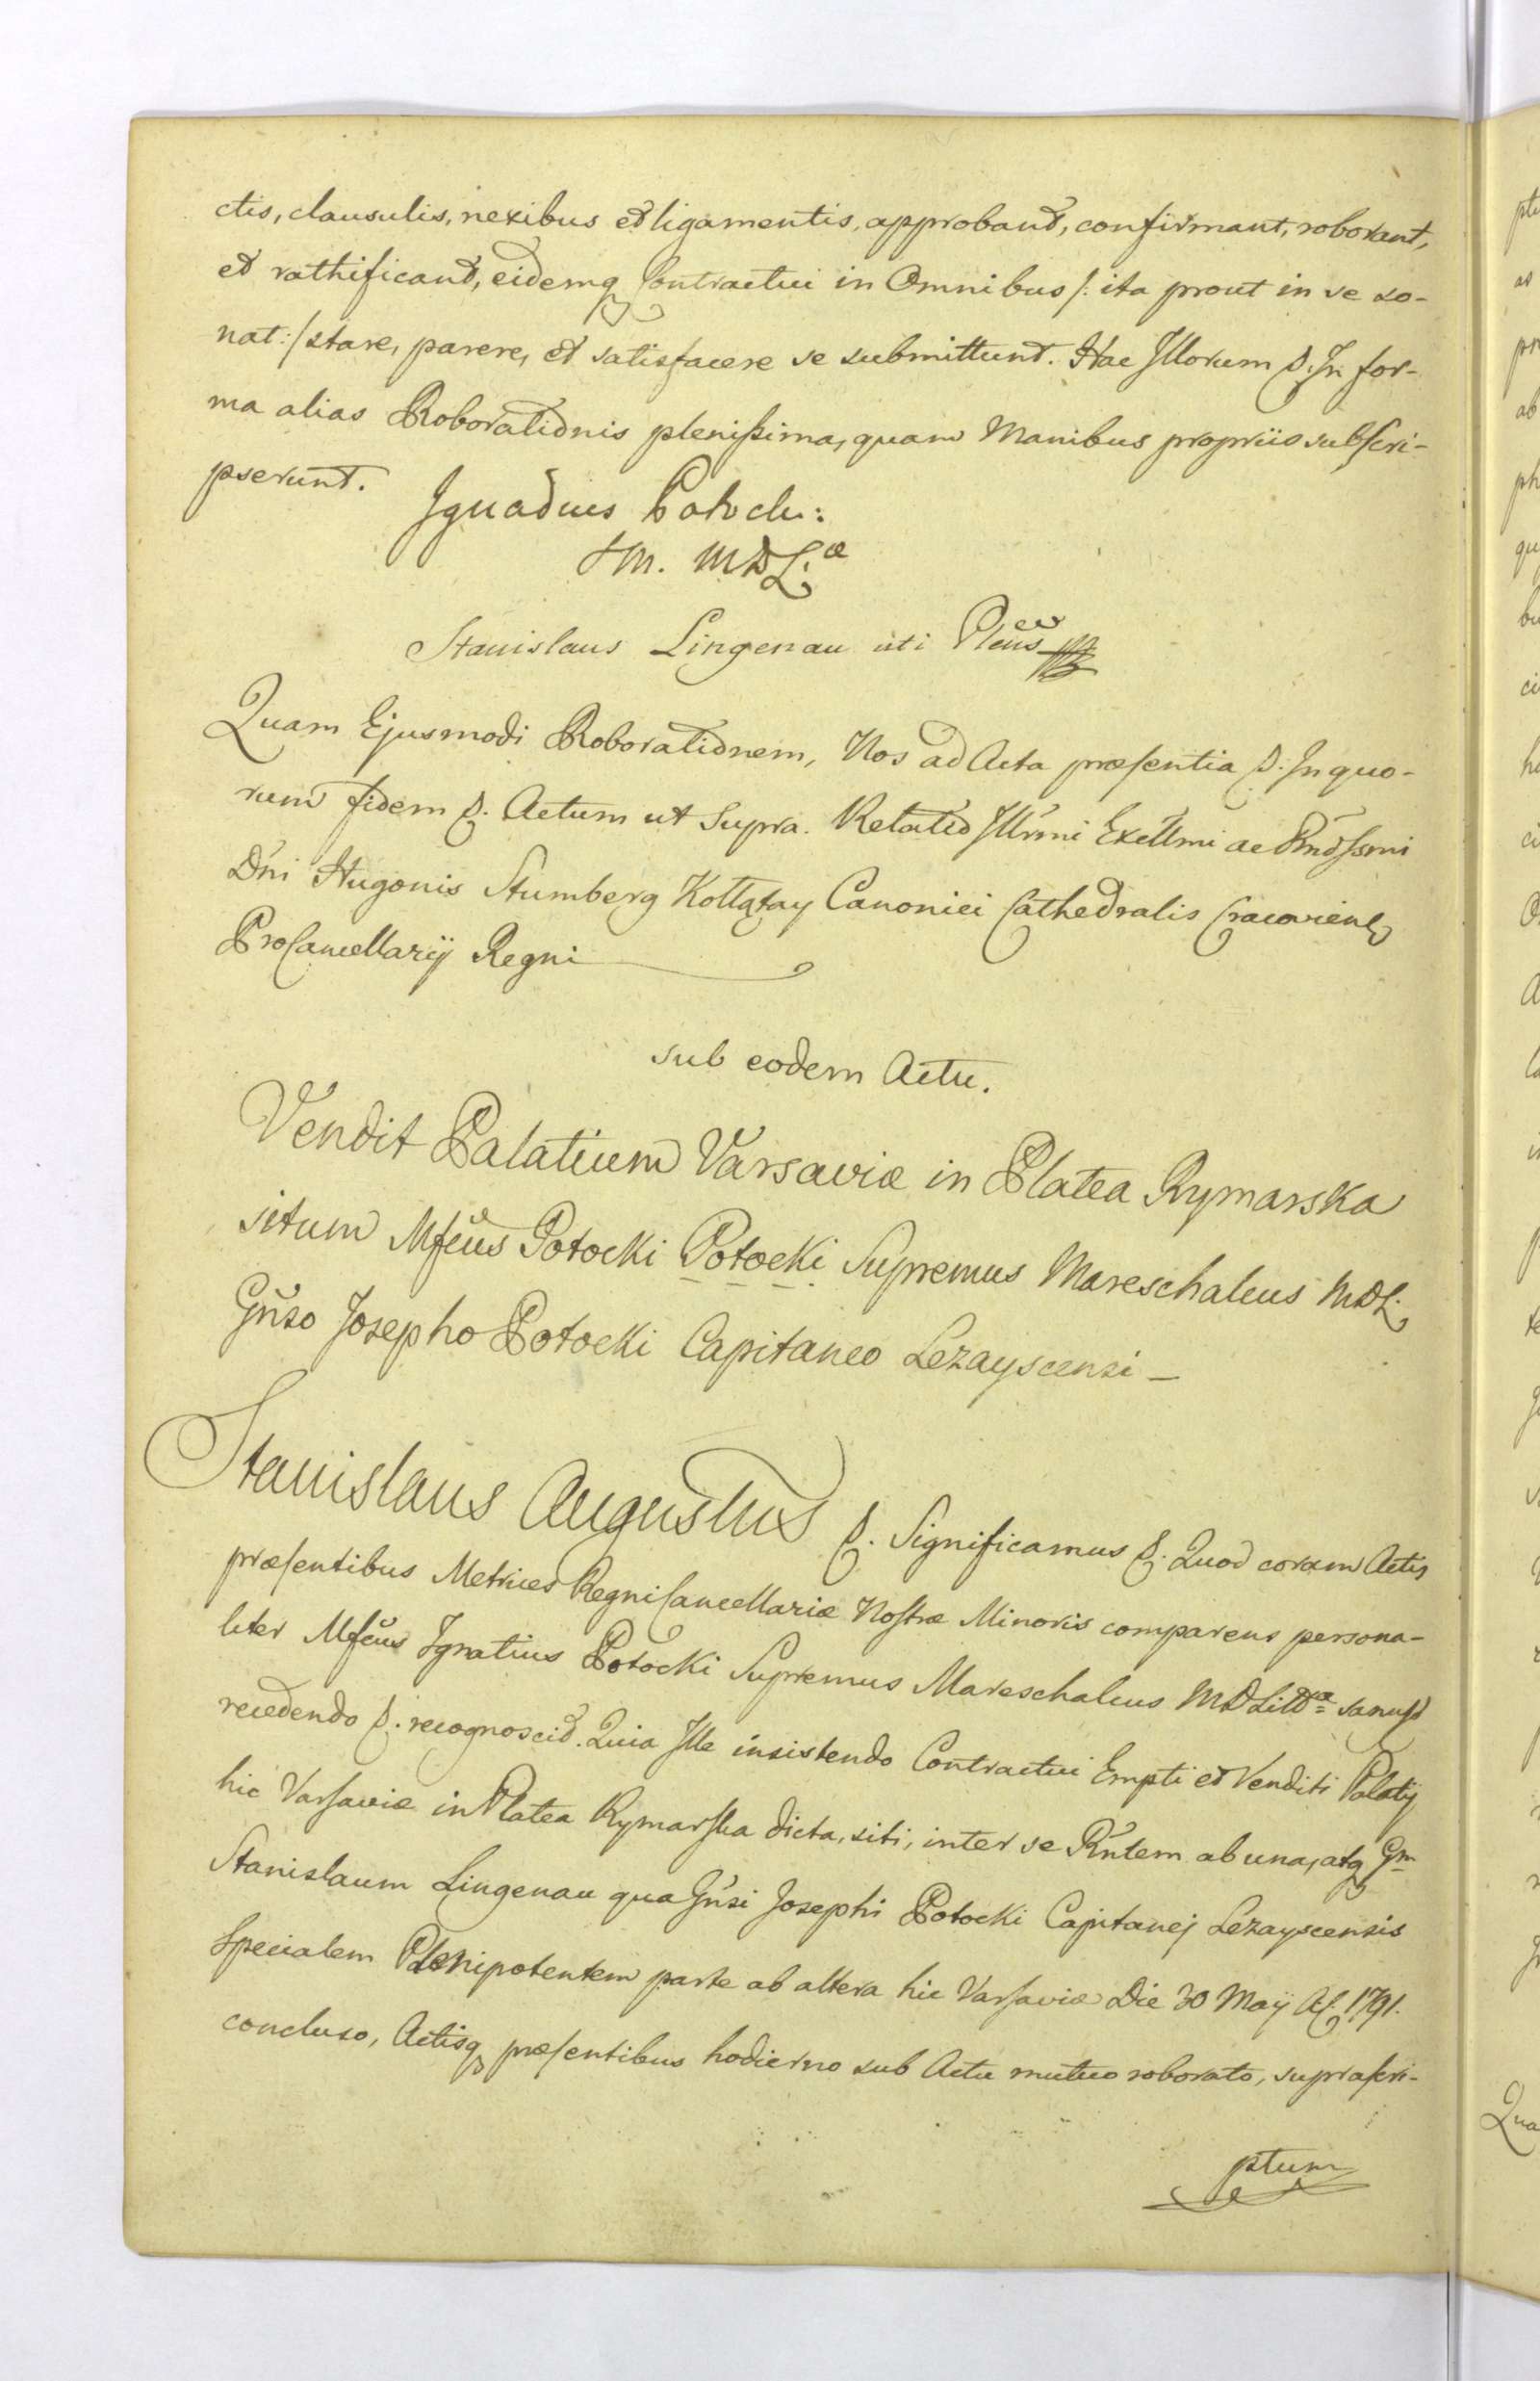 ctis, clausulis, nexibus et ligamentis, approbant, confirmant, roborant,
et rathificant, eidemq Contractui in Omnibus /: ita prout in se so-
nat :/ stare, parere, et satisfacere se submittunt. Hac Illorum p. In for-
ma alias Roborationis plenissima, quam Manibus propriis subscri-
pserunt.
Ignatius Potocki:
SM. MDL:æ
Stanislaus Lingenau uti Plenus
Quam Ejusmodi Roborationem, Nos ad Acta præsentia p. In quo-
rum fidem p. Actum ut Supra. Relatio Illrmi Excllmi ac Rndssmi
Dni Hugonis Stumberg Kołłątay Canonici Cathedralis Cracoviens
ProCancellarij Regni
sub eodem Actu.
Vendit Palatium Varsaviæ in Platea Rymarska
situm Mfcus Potocki Potocki Supremus Mareschalcus MDL.
Gnso Josepho Potocki Capitaneo Lezayscensi –
Stanislaus Augustus p. Significamus p. Quod coram Actis
præsentibus Metrices Regni Cancellariæ Nostræ Minoris comparens persona-
liter Mfcus Ignatius Potocki Supremus Mareschalcus MDLittæ sanusq
recedendo p. recognoscit. Quia Ille insistendo Contractui Empti et Venditi Palatij
hic Varsaviæ in Platea Rymarska dicta, siti, inter se Rntem ab una, atq Gm
Stanislaum Lingenau qua Gnsi Josephi Potocki Capitanej Lezayscensis
Specialem Plenipotentem parte ab altera hic Varsaviæ Die 30 Maij A. 1791.
concluso, Actisq præsentibus hodierno sub Actu mutuo roborato, suprascri-
ptum